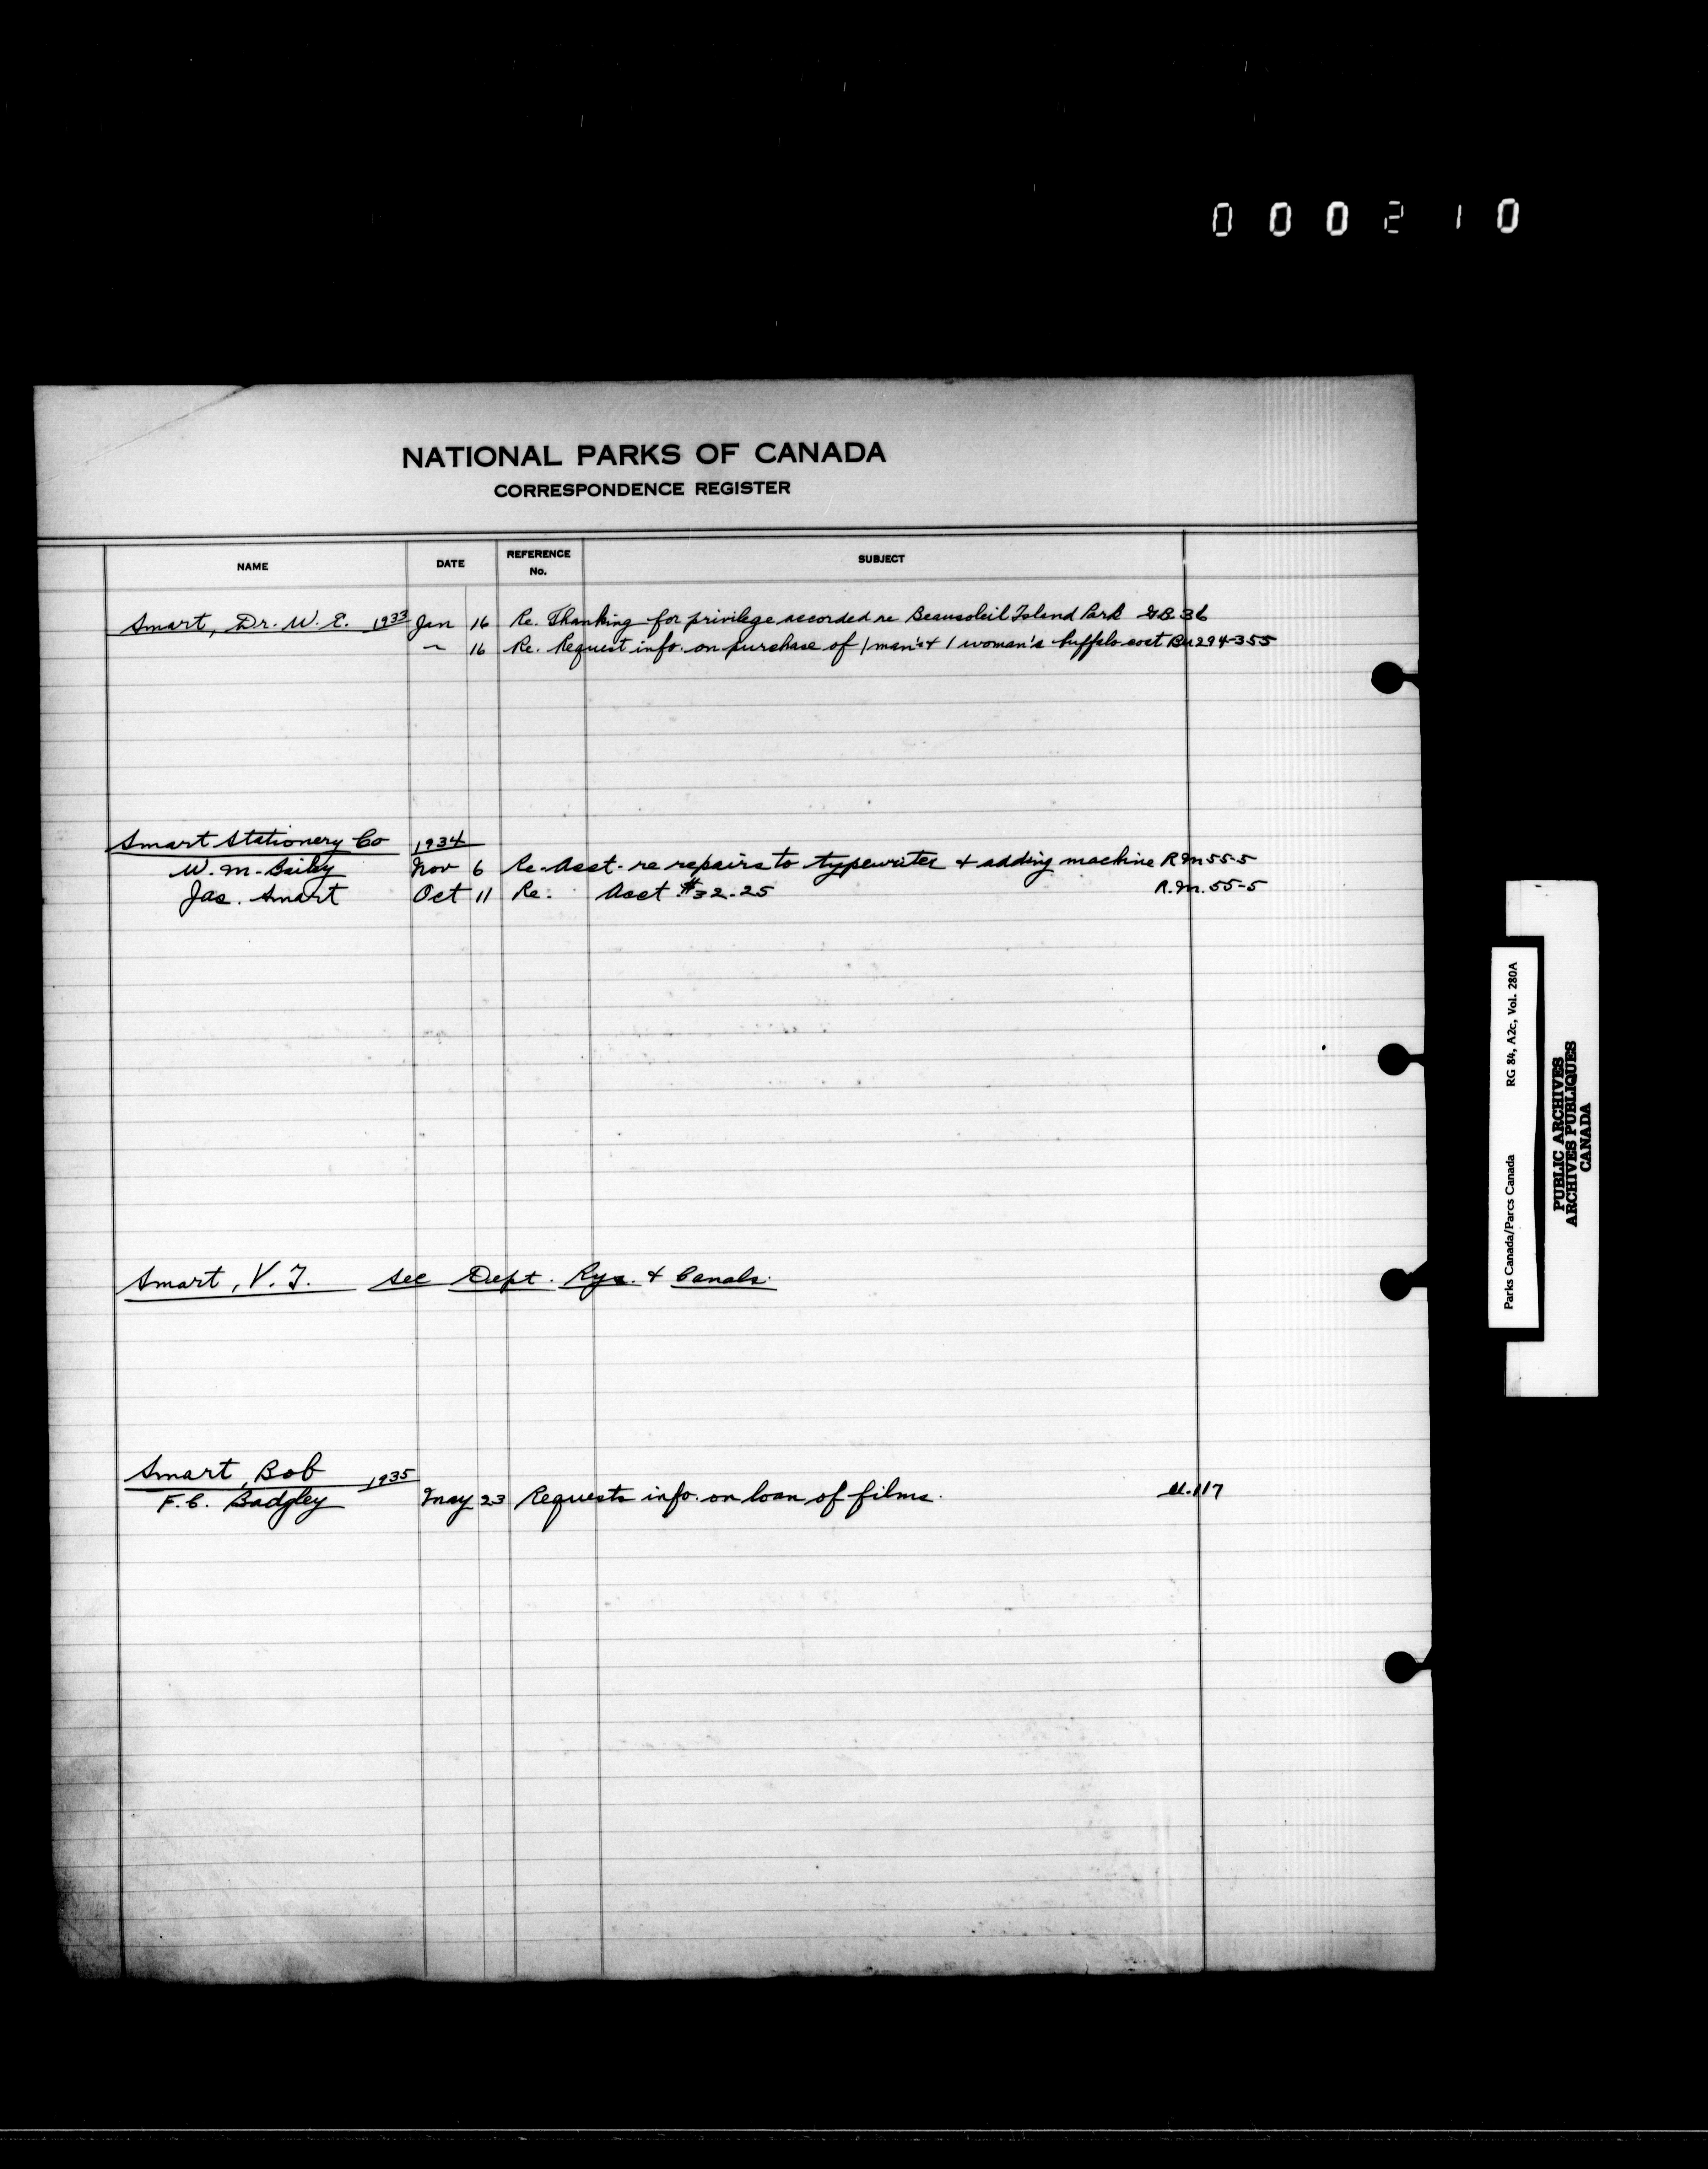 000210
NATIONAL PARKS OF CANADA
CORRESPONDENCE REGISTER
NAME DATE REFERENCE No. SUBJECT
Smart, Dr. W. E. 1933 Jan 16 Re. Thanking for privilege accorded re Beausoleil Island Park G.B. 36
~ 16 Re. Request info. on purchase of 1 man's & 1 woman's buffalo coat Bu294-355
Smart Stationery Co 1934
W. M. Bailey Nov 6 Re. Acct. re repairs to typewriter & adding machine R.M 55-5
Jas. Smart Oct 11 Re. Acct $32.25 R.M. 55-5
Smart, V. I. See Dept. Rys. & Canals.
Smart, Bob 1935
F. C. Badgley May 23 Requests info. on loan of films. U.117
Parks Canada/Parcs Canada RG 84, A2c, Vol. 280A
PUBLIC ARCHIVES
ARCHIVES PUBLIQUES
CANADA